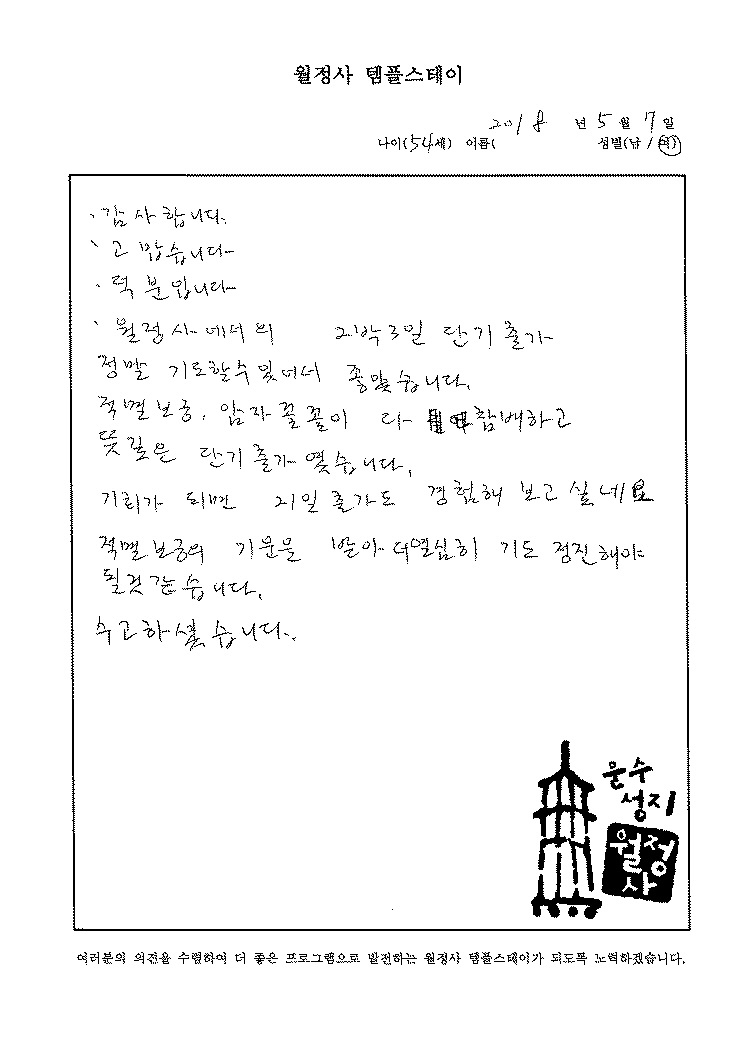 월정사 템플스테이
2018 년 5 월 7 일
나이(54세) 이름( 성별(남 / 여)
· 감사합니다.
· 고맙습니다
· 덕분입니다
· 월정사에서의 2박3일 단기출가
정말 기도할수 있어서 좋았습니다.
적멸보궁, 암자 꼴꼴이 다 참배하고
뜻깊은 단기출가 였습니다.
기회가 되면 21일 출가도 경험해 보고 싶네요
적멸보궁의 기운을 받아 더열심히 기도 정진해야
될것 같습니다.
수고하셨습니다.
문수
성지
월정
사
여러분의 의견을 수렴하여 더 좋은 프로그램으로 발전하는 월정사 템플스테이가 되도록 노력하겠습니다.